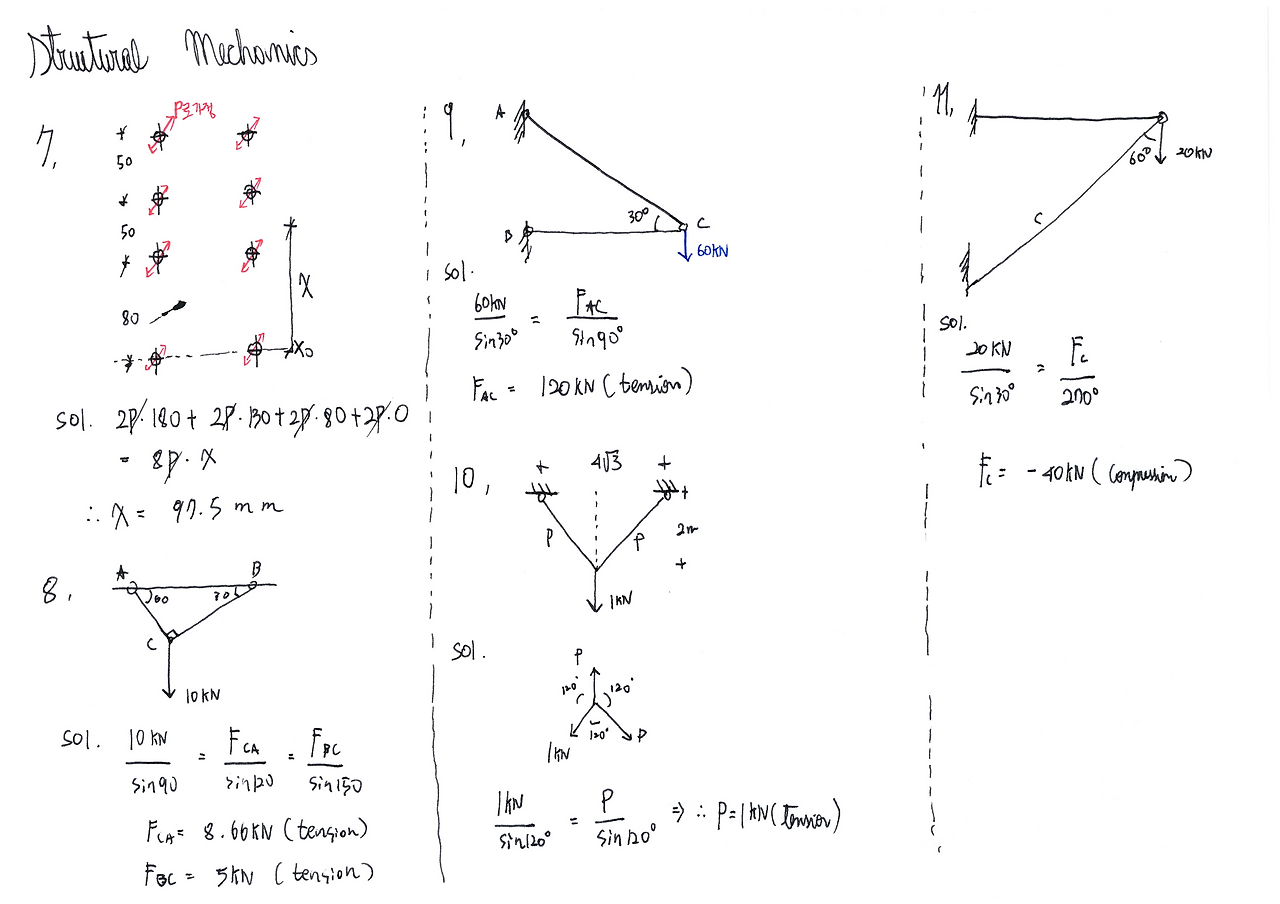 Structural Mechanics
7,
P로가정
50
50
80
X
X₀
sol. 2P·180 + 2P·130 + 2P·80 + 2P·0
= 8P·X
∴ X = 97.5 mm
8,
A B
60 30
C
10kN
sol. 10kN/sin90 = F_CA/sin120 = F_BC/sin150
F_CA = 8.66kN (tension)
F_BC = 5kN (tension)
9,
A
B 30° C
60kN
sol.
60kN/sin30° = F_AC/sin90°
F_AC = 120kN (tension)
10,
4√3
P P 2m
1kN
sol.
P
120° 120°
120°
1kN P
1kN/sin120° = P/sin120° ⇒ ∴ P = 1kN (Tension)
11,
60° 20kN
C
sol.
20kN/sin30° = F_C/270°
F_C = -40kN (compression)